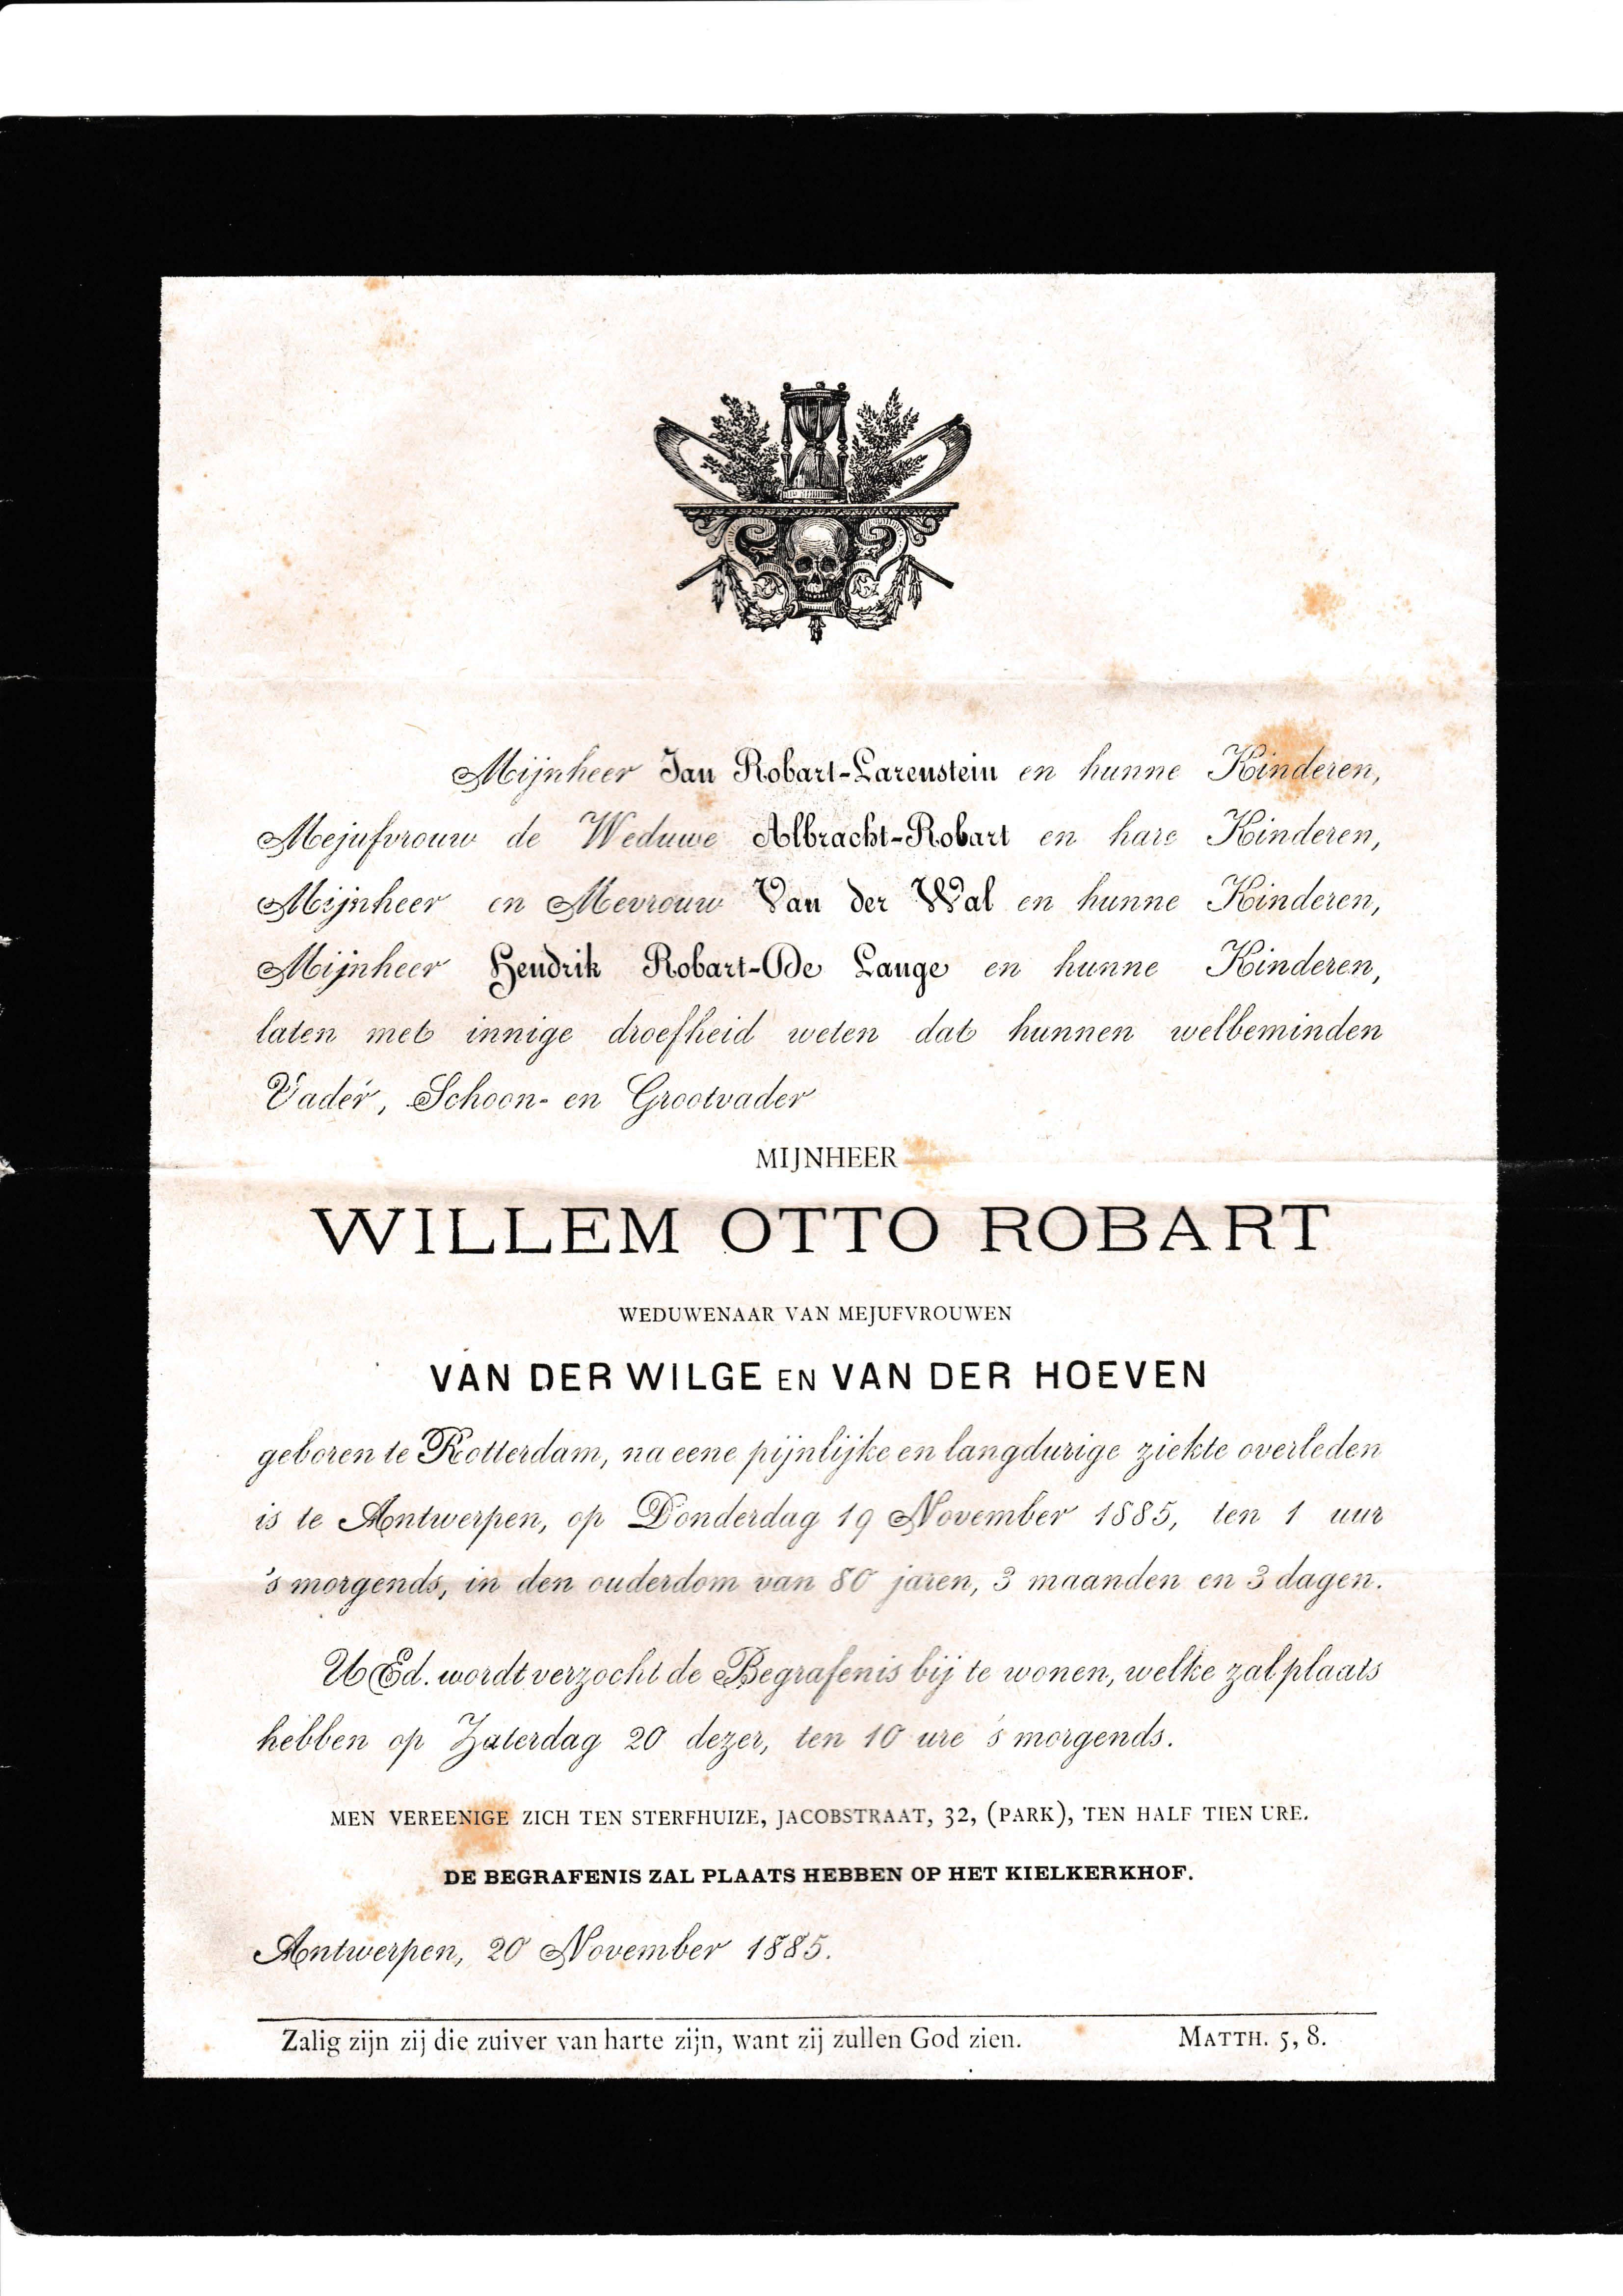 Mijnheer Jan Robart-Larenstein en hunne Kinderen,
Mejufvrouw de Weduwe Albracht-Robart en hare Kinderen,
Mijnheer en Mevrouw Van der Wal en hunne Kinderen,
Mijnheer Hendrik Robart-Ode Lange en hunne Kinderen,
laten met innige droefheid weten dat hunnen welbeminden
Vader, Schoon- en Grootvader
MIJNHEER
WILLEM OTTO ROBART
WEDUWENAAR VAN MEJUFVROUWEN
VAN DER WILGE EN VAN DER HOEVEN
geboren te Rotterdam, na eene pijnlijke en langdurige ziekte overleden
is te Antwerpen, op Donderdag 19 November 1885, ten 1 uur
's morgends, in den ouderdom van 80 jaren, 3 maanden en 3 dagen.
U Ed. wordt verzocht de Begrafenis bij te wonen, welke zal plaats
hebben op Zaterdag 20 dezer, ten 10 ure 's morgends.
MEN VEREENIGE ZICH TEN STERFHUIZE, JACOBSTRAAT, 32, (PARK), TEN HALF TIEN URE.
DE BEGRAFENIS ZAL PLAATS HEBBEN OP HET KIELKERKHOF.
Antwerpen, 20 November 1885.
Zalig zijn zij die zuiver van harte zijn, want zij zullen God zien. MATTH. 5, 8.